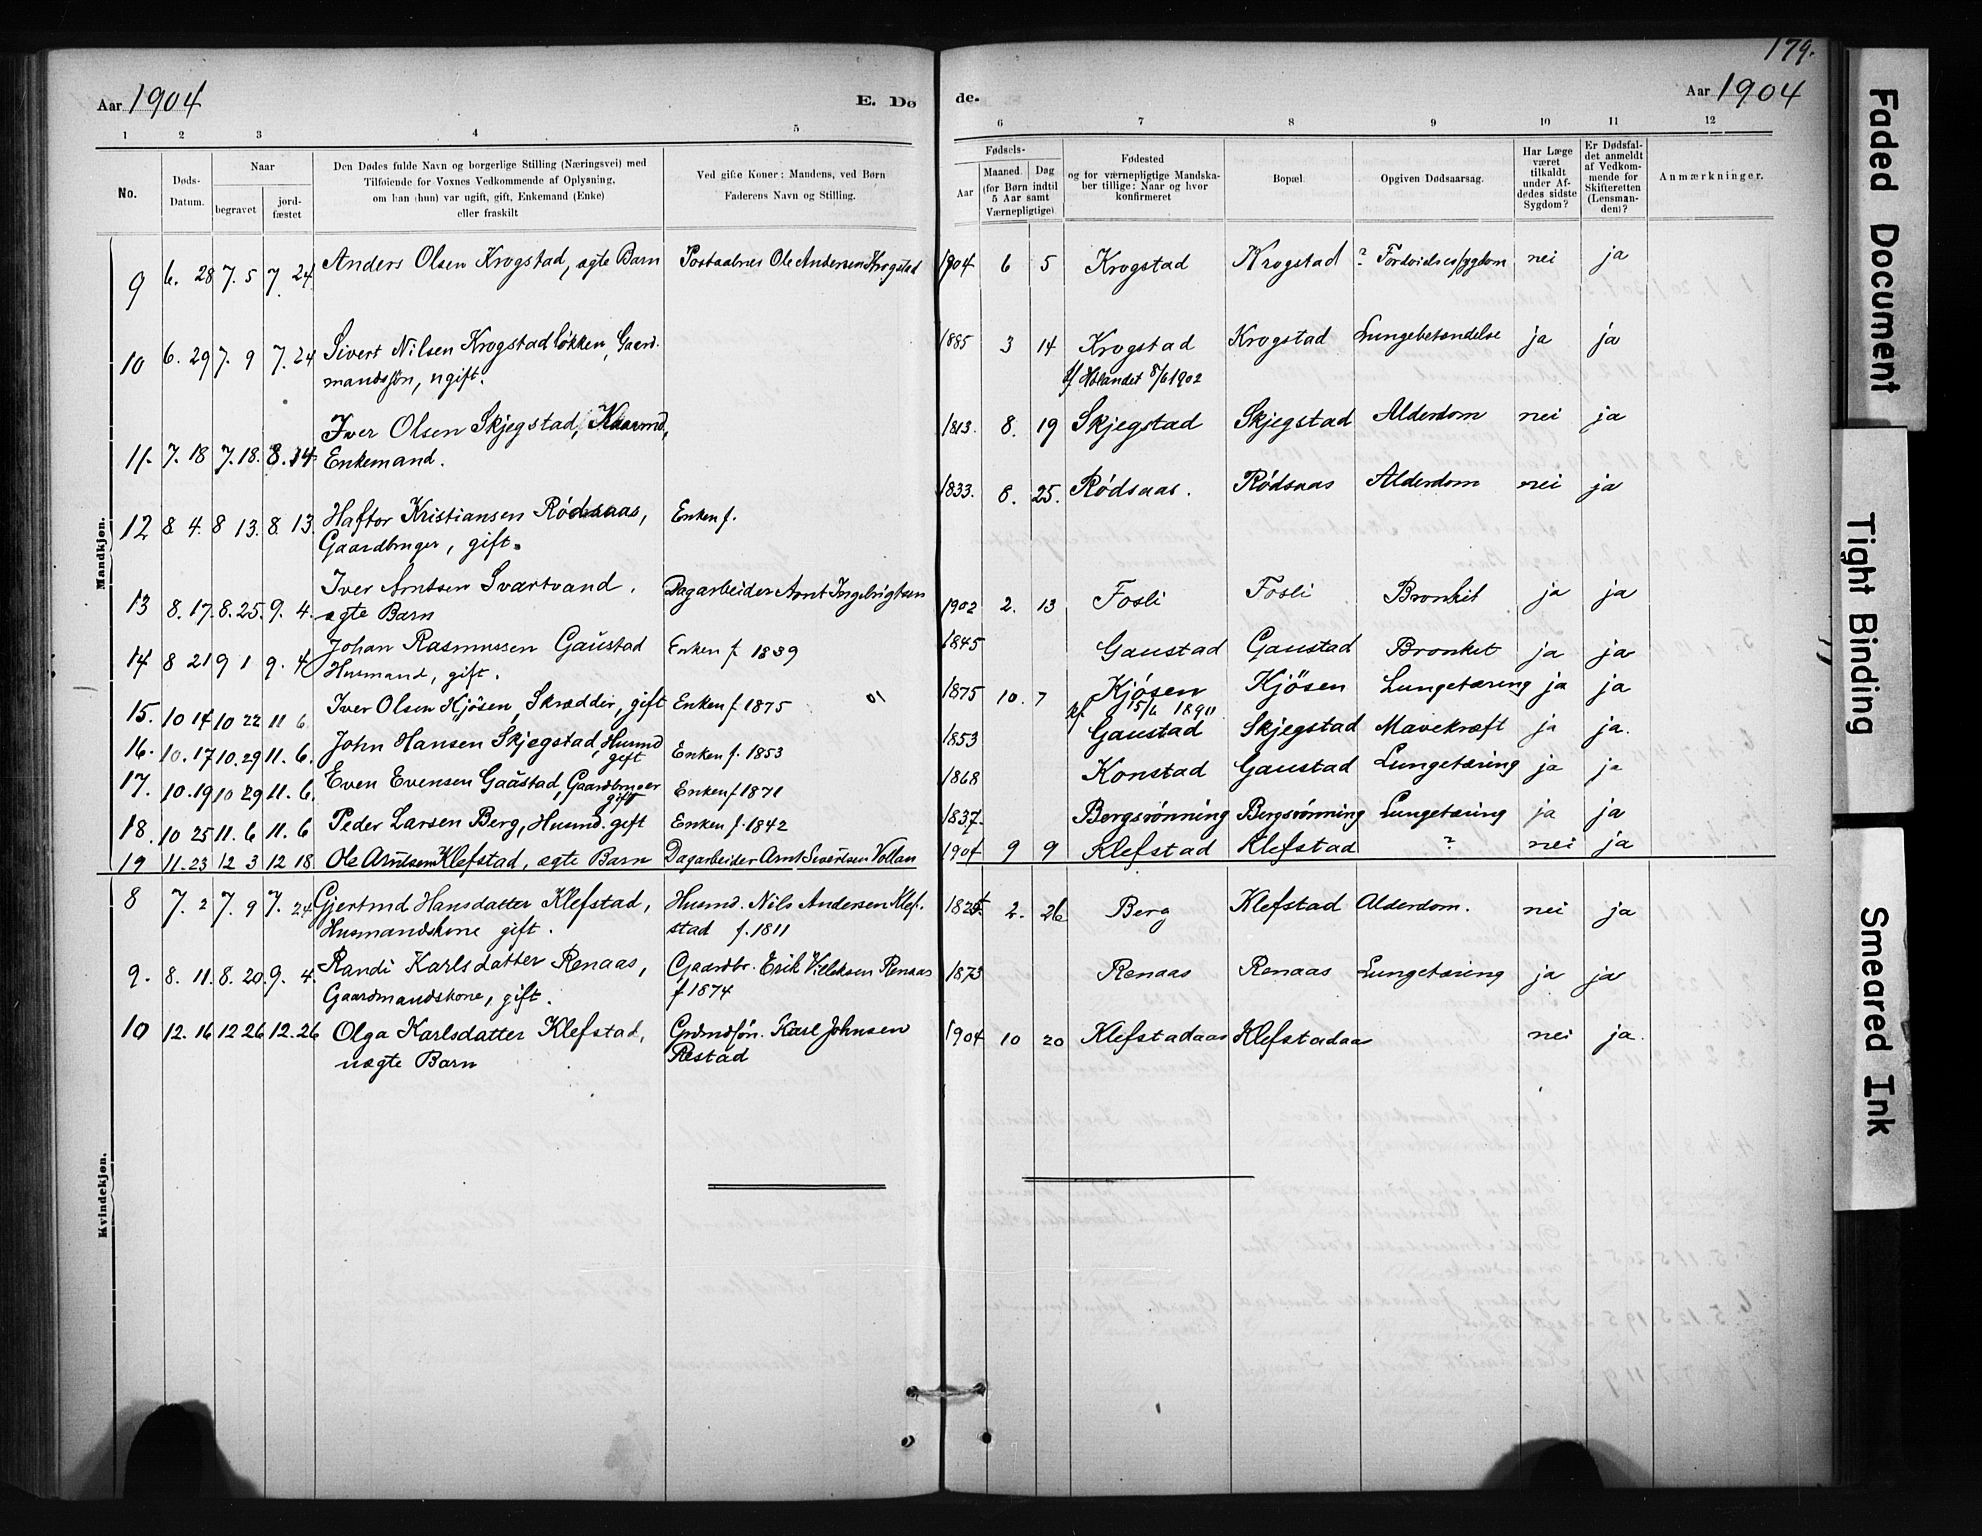 179.
Aar 1904 E. Dø de. Aar 1904
1 2 3 4 5 6 7 8 9 10 11 12
No. Døds-Datum. Naar begravet jordfæstet
Den Dødes fulde Navn og borgerlige Stilling (Næringsvei) med
Tilføiende for Voxnes Vedkommende af Oplysning,
om han (hun) var ugift, gift, Enkemand (Enke)
eller fraskilt
Ved gifte Koner: Mandens, ved Børn
Faderens Navn og Stilling.
Fødsels-
Aar Maaned. Dag
(for Børn indtil
5 Aar samt
Værnepligtige)
Fødested
og for værnepligtige Mandska-
ber tillige: Naar og hvor
konfirmeret
Bopæl.
Opgiven Dødsaarsag.
Har Læge
været
tilkaldt
under Af-
dødes sidste
Sygdom?
Er Dødsfal-
det anmeldt
af Vedkom-
mende for
Skifteretten
(Lensman-
den)?
Anmærkninger.
Mandkjøn.
9 6. 28 7. 5 7. 24 Anders Olsen Krogstad, ægte Barn Ole Andersen Krogstad 1904 6 5 Krogstad Krogstad ? nei ja
10 6. 29 7. 9 7. 24 Sivert Nilsen Krogstadløkken, Gaard- 1885 3 14 Krogstad Krogstad Lungebetændelse ja ja
mandssøn, ugift. 8/6 1902
11. 7. 18 7. 18. 8. 14 Iver Olsen Skjegstad, 1813. 8. 19 Skjegstad Skjegstad Alderdom nei ja
Enkemand.
12 8. 4. 8 13. 8. 13. Haftor Kristiansen Rødsaas, Enken f. 1833. 8. 25. Rødsaas. Rødsaas Alderdom nei ja
Gaardbruger, gift.
13 8. 17. 8. 25. 9. 4. Iver Arntsen Svartvand. Dagarbeider Arnt Ingebrigtsen 1902 2. 13 Fosli Fosli Bronkit ja ja
ægte Barn
14 8 21 9 1 9. 4 Johan Rasmussen Gaustad Enken f. 1839 1845 Gaustad Gaustad Bronkit ja ja
Husmand, gift.
15. 10 14 10 22 11 6. Iver Olsen Kjøsen, Skrædder, gift Enken f. 1875 1875 10. 7 Kjøsen Kjøsen Lungetæring ja ja
kf. 15/6 1890
16. 10. 17 10. 29 11. 6. John Hansen Skjegstad, Husmd Enken f. 1853 1853 Gaustad Skjegstad Mavekræft ja ja.
gift
17. 10. 19 10 29 11. 6. Even Evensen Gaustad, Gaardbruger Enken f 1871 1868 Konstad Gaustad Lungetæring ja ja
gift
18. 10 25 11. 6 11. 6 Peder Larsen Berg, Husmd. gift Enken f. 1842 1837. Bergsrønning Bergsrønning Lungetæring ja ja
19 11. 23 12 3 12 18 Ole Arntsen Klefstad, ægte Barn Dagarbeider Arnt Sivertsen Vollan 1904 9 9 Klefstad Klefstad ? nei ja
Kvindekjøn.
8 7. 2 7. 9 7. 24. Gjertrud Hansdatter Klefstad, Husmd. Nils Andersen Klef- 2. 26 Berg Klefstad Alderdom. nei ja
Husmandskone gift. stad f. 1811
9. 8. 11. 8. 20. 9. 4. Randi Karlsdatter Renaas, Gaardbr. Erik Renaas 1873 Renaas Renaas Lungetæring ja ja
Gaardmandskone, gift. f 1874
10 12. 16 12 26 12. 26 Olga Karlsdatter Klefstad, Karl Johnsen 1904 10 20 Klefstadaas Klefstadaas nei ja.
uægte Barn Restad
Faded Document
Tight Binding
Smeared Ink